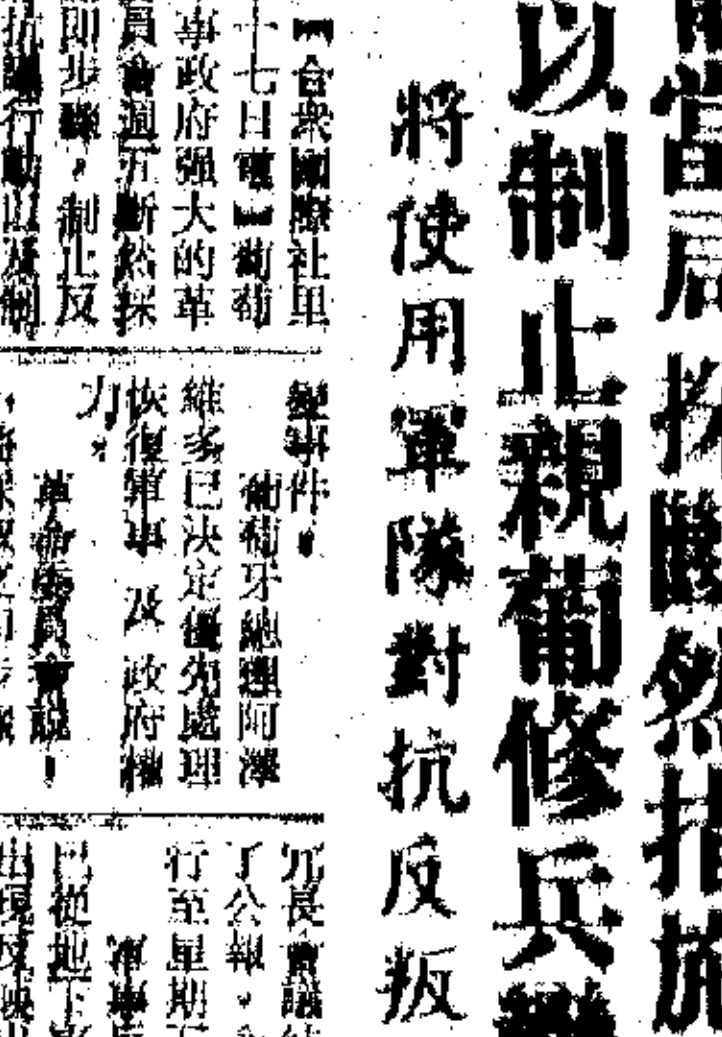 當局採斷然措施
以制止親葡修兵
將使用軍隊對抗反叛
【合衆國際社里
十七日電】葡萄
專政府强大的革
員會週五斷然採
即步驟，制止反
抗議行動以及制
變事件。
葡萄牙總理阿澤
維多已決定優先處理
恢復軍事及政府權
力。
革命委員會說：
冗長會議
了公報，
行至星期五
軍事
已從地下
出現反映出